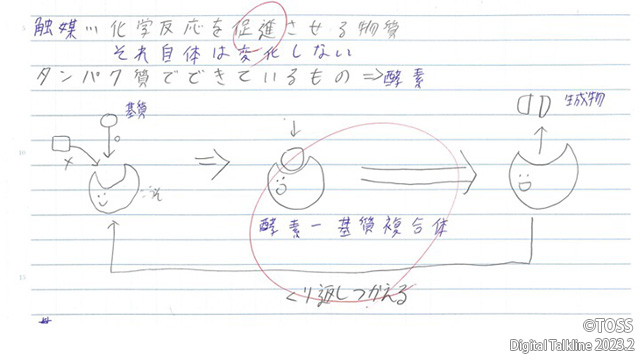 触媒…化学反応を促進させる物質
それ自体は変化しない
タンパク質でできているもの⇒酵素
基質
生成物
酵素－基質複合体
くり返しつかえる
©TOSS
Digital Talkline 2023.2